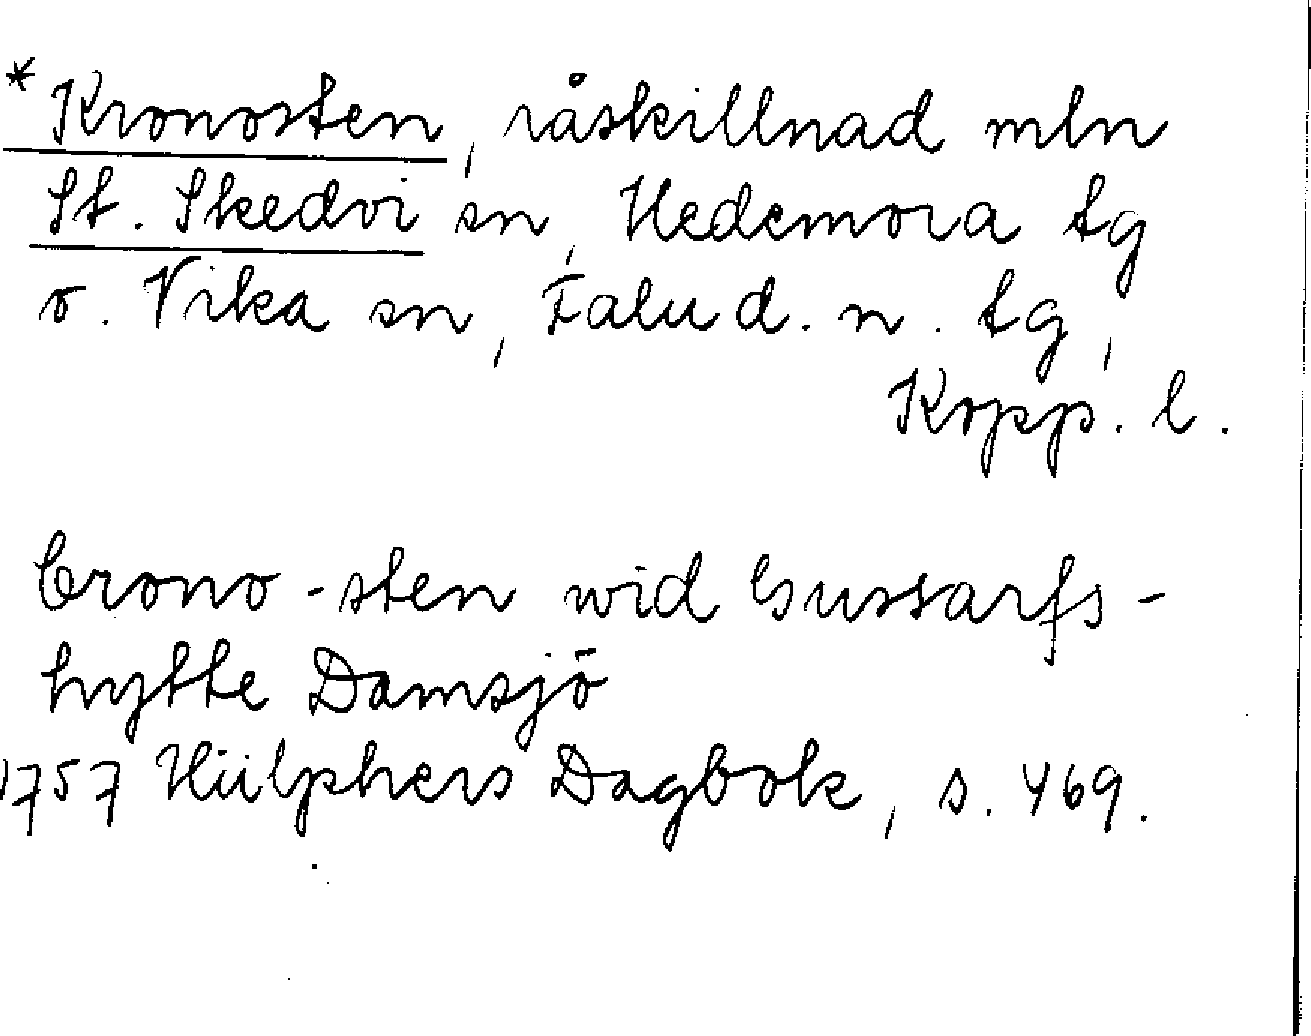 *Kronosten, råskillnad mln
St. Skedvi sn, Hedemora tg
o. Vika sn, Falu d. n. tg,
Kopp. l.
Crono-sten wid Gussarfs-
hytte Damsjö
1757 Hülphers Dagbok, s. 469.